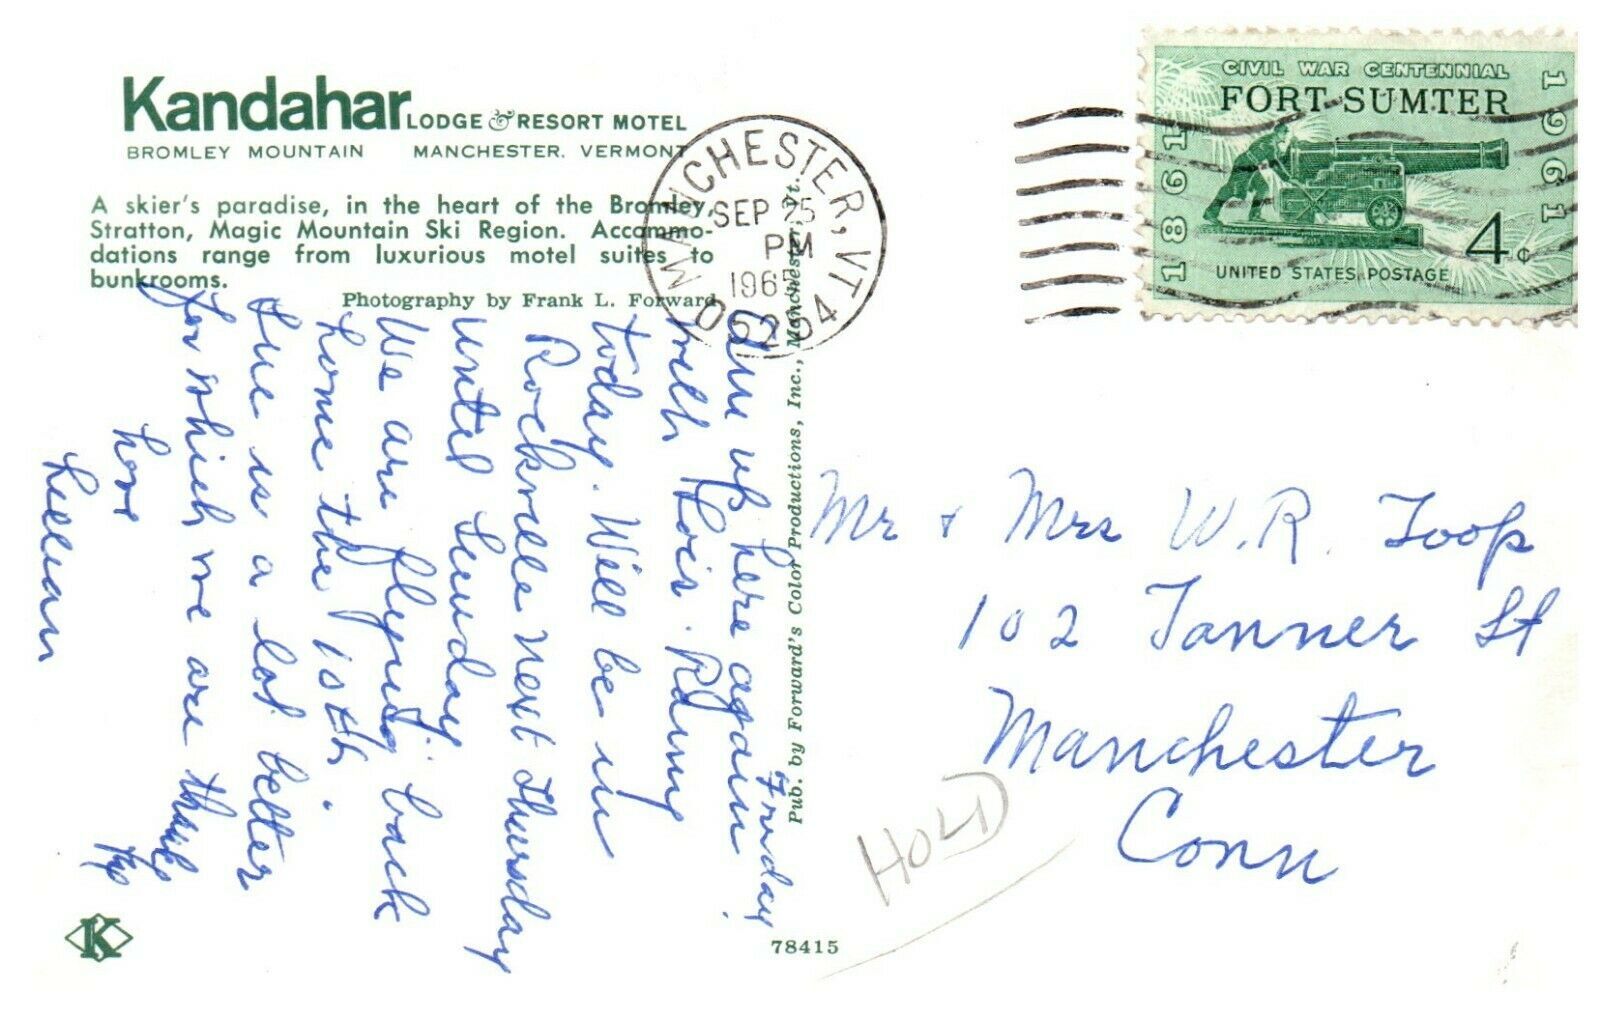 Kandahar LODGE & RESORT MOTEL
BROMLEY MOUNTAIN MANCHESTER, VERMONT
A skier's paradise, in the heart of the Bromley,
Stratton, Magic Mountain Ski Region. Accommo-
dations range from luxurious motel suites to
bunkrooms.
Photography by Frank L. Forward
MANCHESTER, VT
SEP 25
PM
1965
05254
CIVIL WAR CENTENNIAL
FORT SUMTER
1861
1961
4¢
UNITED STATES POSTAGE
Friday
Am up here again
with Lois. Rainy
today. Will be in
Rockville next Thursday
until Sunday
We are flying back
home the 15th.
Sue is a lot better
for which we are thankful
Love
Lillian
Pub. by Forward's Color Productions, Inc., Manchester, Vt.
Mr + Mrs W.R. Toop
102 Tanner St
Manchester
Conn
HOLD
K
78415